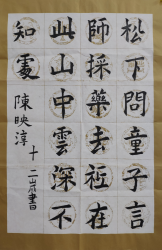 松下問童子言
師採藥去祗在
此山中雲深不
知處
陳映淳
十二 書